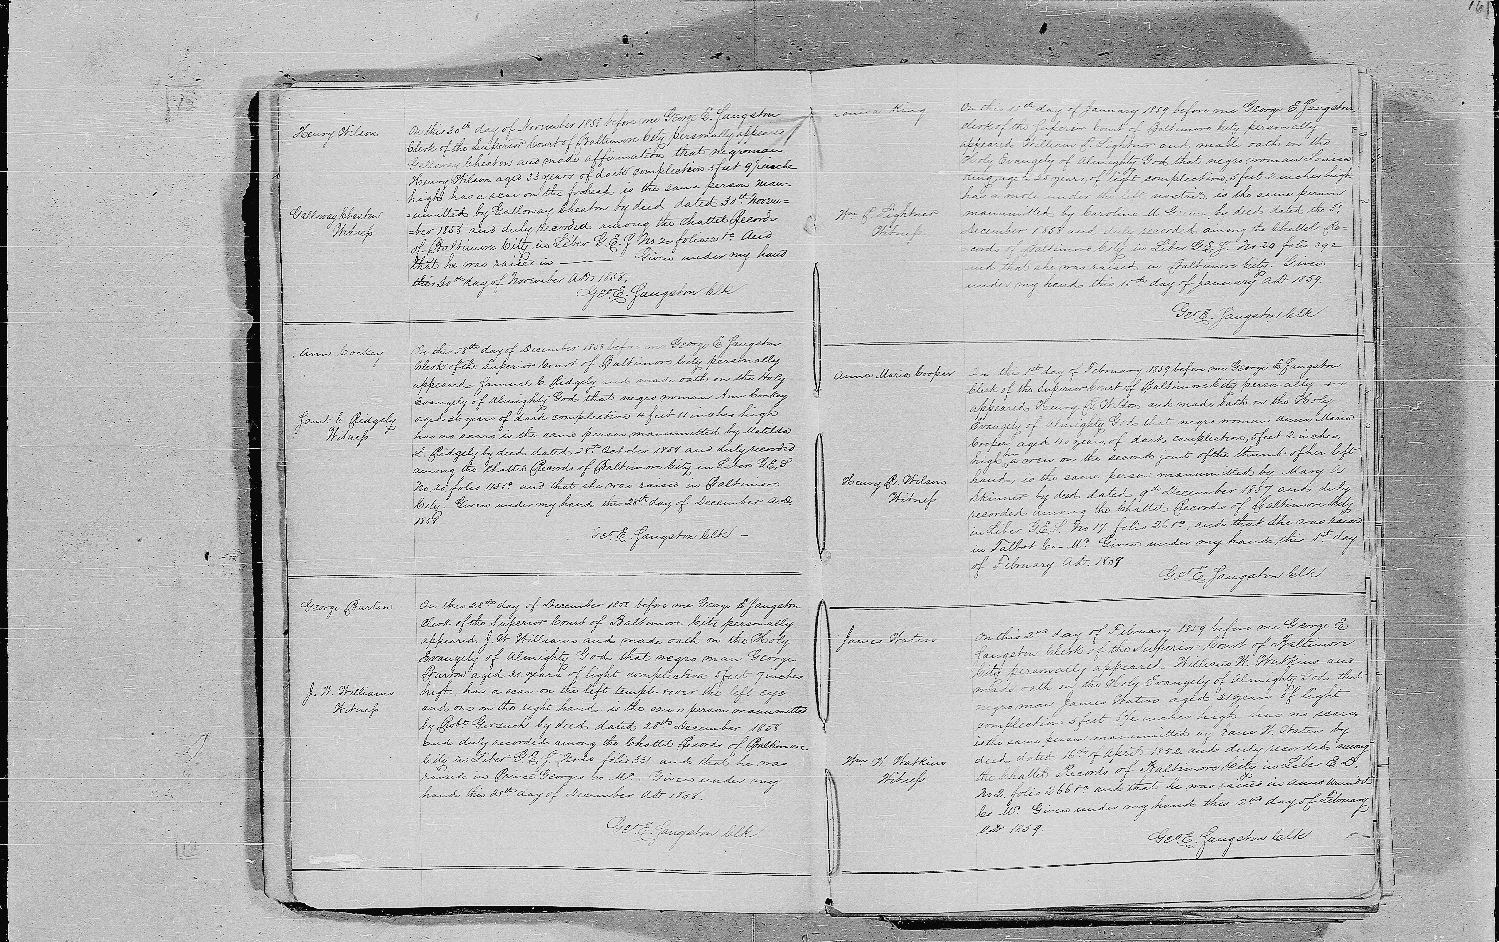 Henry Wilson
On this 30th day of November 1858 before me George E. Sangston
Clerk of the Superior Court of Baltimore City personally appears
Galloway Cheston and made affirmation that negro man
Henry Wilson aged 33 years of dark complexion 5 feet 9 inches
high has a scar on the forehead is the same person man-
umitted by Galloway Cheston by deed dated 30th Novem-
ber 1858 and duly Recorded among the Chattel Records
of Baltimore City in Liber G.E.S. No 20 folio
that he was raised in ——— Given under my hand
this 30th day of November A.D. 1858.
Geo E. Sangston Clk
Galloway Cheston
Witness
Ann
On this 28th day of December 1858 before me George E. Sangston
Clerk of the Superior Court of Baltimore City personally
appeared Samuel C Ridgely and made oath on the Holy
Evangely of Almighty God that negro woman Ann
aged years of dark complexion 4 feet 11 inches high
has no scars is the same person manumitted by Matilda
Ridgely by deed dated 28th October 1854 and duly recorded
among the Chattel Records of Baltimore City in Liber G.E.S
No 20 folio and that she was raised in Baltimore
City Given under my hand the 28th day of December A.D.
1858
Geo E. Sangston Clk —
Saml C Ridgely
Witness
George Barton
On this 28th day of December 1858 before me George E Sangston
Clerk of the Superior Court of Baltimore City personally
appeared J. W. Williams and made oath on the Holy
Evangely of Almighty God that negro man George
Barton aged years of light complexion 5 feet 7 inches
high has a scar on the left temple over the left eye
and one on the right hand is the same person manumitted
by Robt Gorsuch by deed dated 20th December 1858
and duly recorded among the Chattel Records of Baltimore
City in Liber G.E.S. No 20 folio 331 and that he was
raised in Prince Georges Co Md. Given under my
hand this 28th day of December A.D. 1858.
Geo E. Sangston Clk
J. W. Williams
Witness
Louisa King
On this 15th day of January 1859 before me George E. Sangston
clerk of the Superior Court of Baltimore City personally
appeared William P. Lightner and made oath on the
Holy Evangely of Almighty God that negro woman Louisa
King, aged years, of light complexion, 5 feet 2 inches high
has a mole under the left nostril, is the same person
manumitted by Caroline M. by deed dated the
December 1858 and duly recorded among the Chattel Re-
cords of Baltimore City in Liber G.E.S. No 20 folio
and that she was raised in Baltimore City Given
under my hand this 15th day of January A.D. 1859.
Geo E. Sangston Clk
Wm P. Lightner
Witness
Anna Maria Cooper
On the 1st day of February 1859 before me George E. Sangston
Clerk of the Superior Court of Baltimore City personally
appeared Henry C. Wilson and made oath on the Holy
Evangely of Almighty God that negro woman Anna Maria
Cooper aged 40 years of dark complection, 5 feet 2 inches
high, on the second joint of the thumb of her left
hand, is the same person manumitted by Mary
Skinner by deed dated 9th December 1857 and duly
recorded among the Chattel Records of Baltimore City
in Liber G.E.S. No 17 folio 26 and that she was raised
in Talbot Co Md. Given under my hand this 1st day
of February A.D. 1859
Geo E. Sangston Clk
Henry C. Wilson
Witness
James Waters
On this 2nd day of February 1859 before me George E
Sangston Clerk of the Superior Court of Baltimore
City personally appeared William W. Watkins and
made oath on the Holy Evangely of Almighty God that
negro man James Waters aged years of light
complection 5 feet inches high has no scars
is the same person manumitted by W. Waters by
deed dated 16th of April 1852 and duly recorded among
the Chattel Records of Baltimore City in Liber
No 2 folio 266 and that he was raised in Anne Arundel
Co Md. Given under my hand this 2nd day of February
A.D. 1859
Geo E. Sangston Clk
Wm W. Watkins
Witness